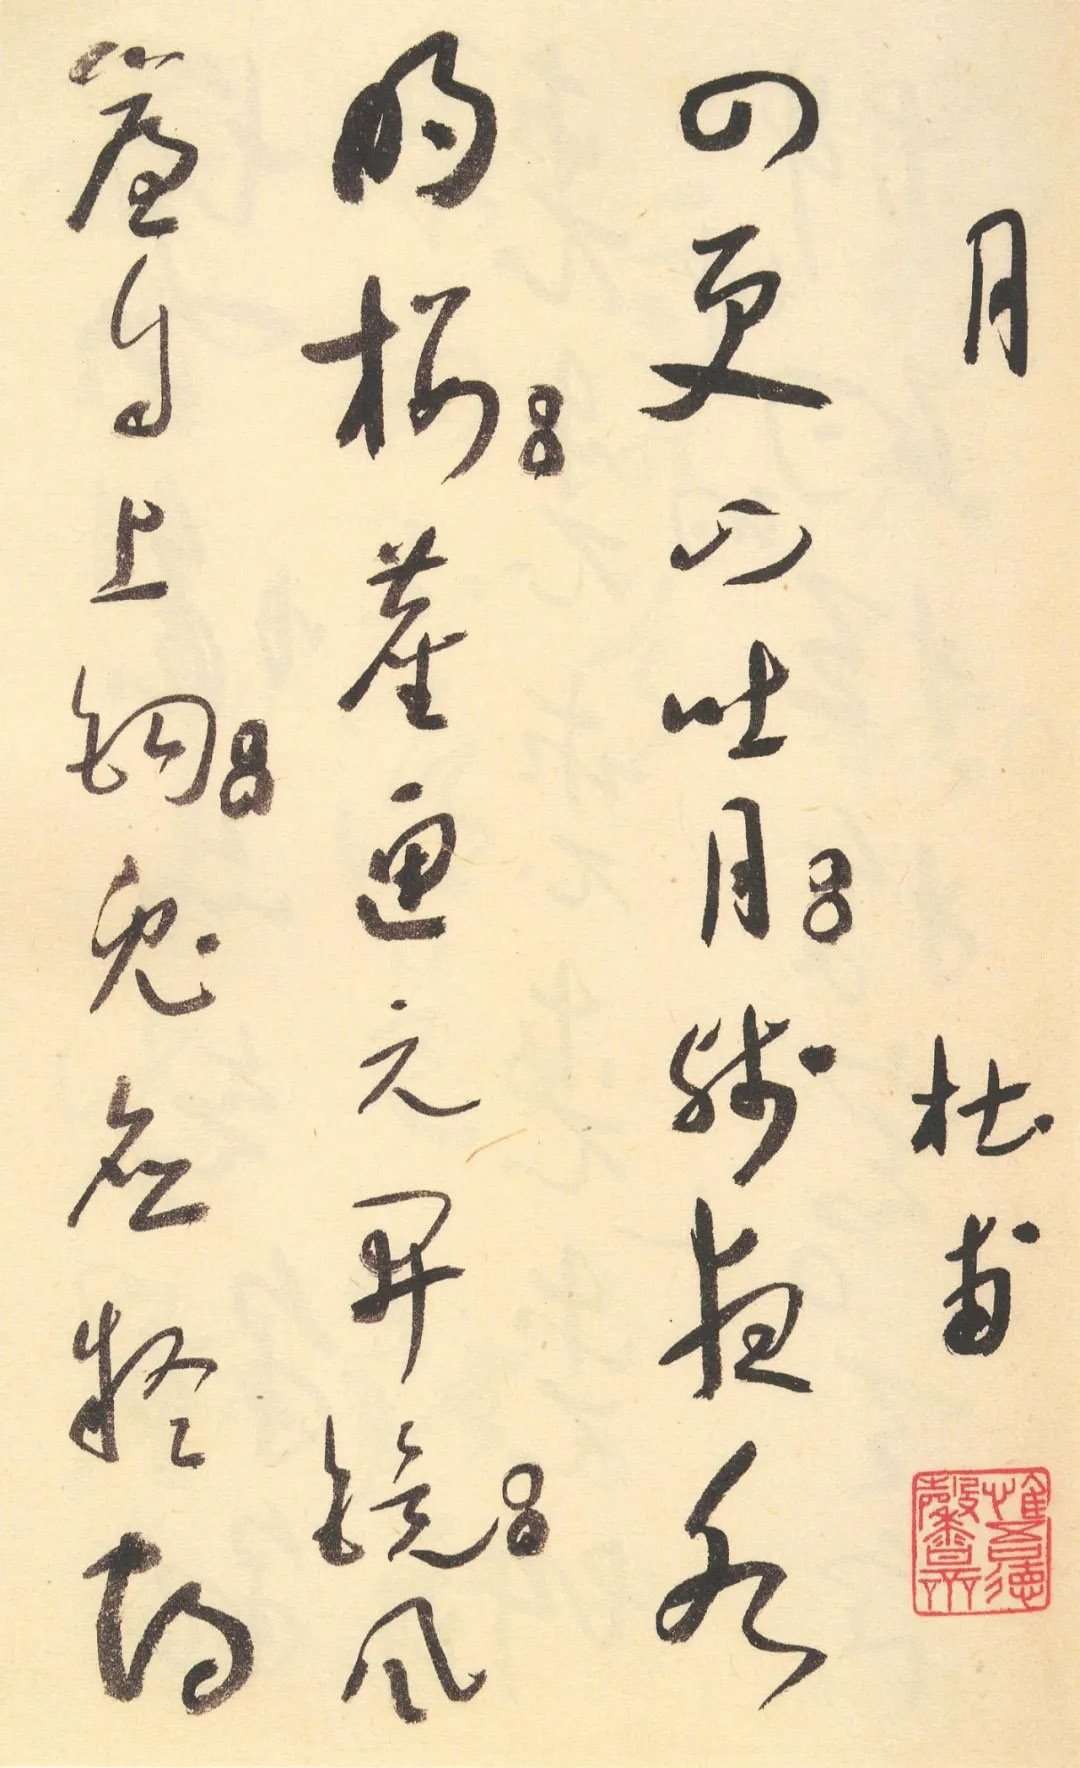 月 杜甫
惟吾德馨
四更山吐月殘夜水
明樓塵匣元開鏡風
簾自上鉤兔應疑鶴